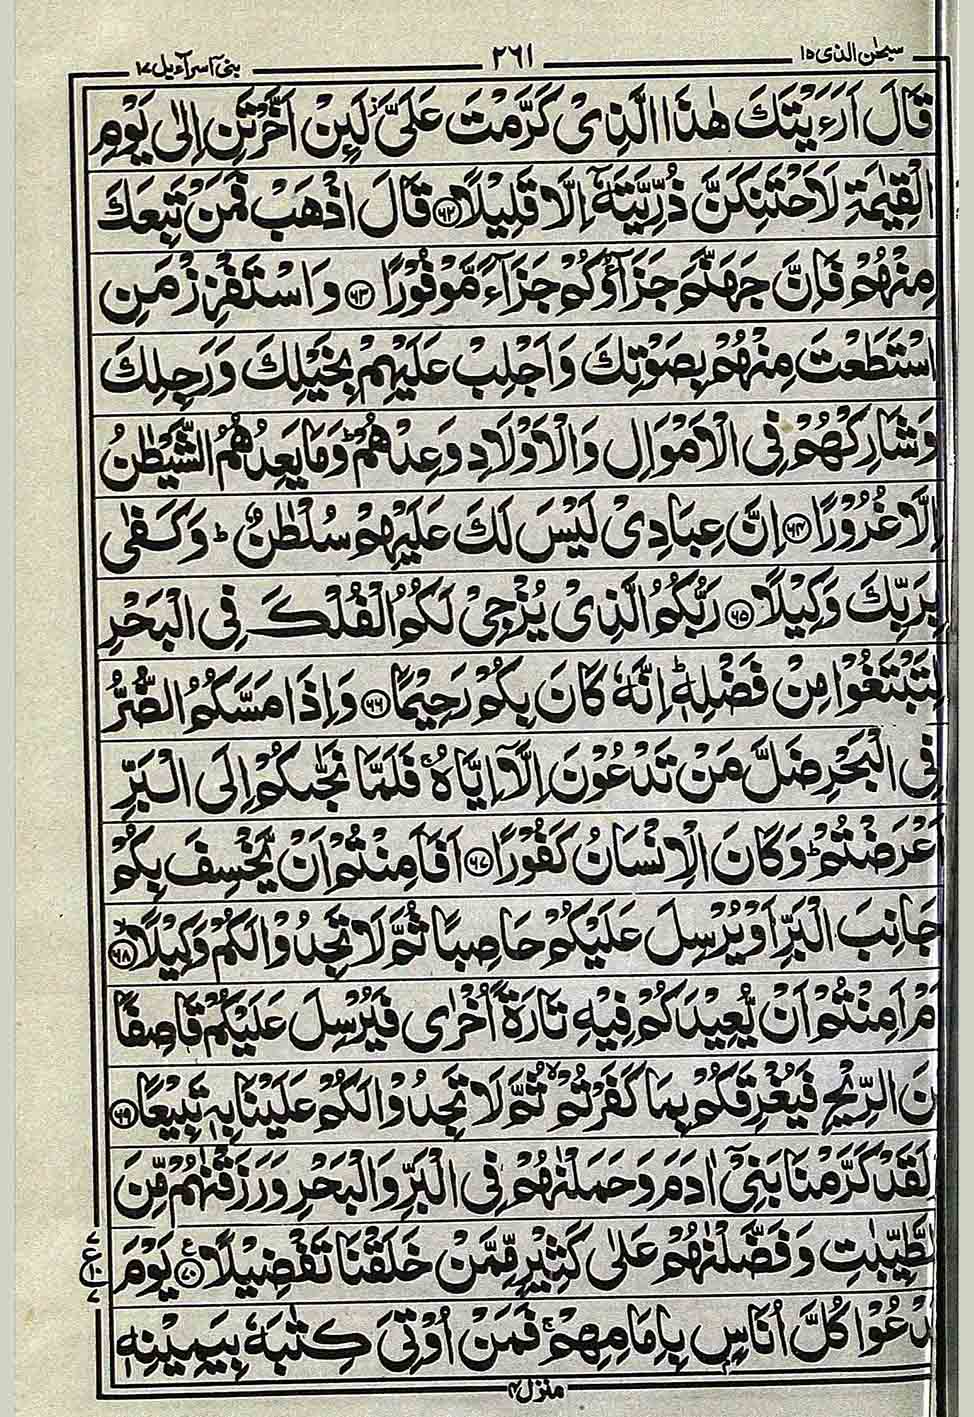 سبحٰن الذی ۱۵
۲۶۱
بنیٓ اسرآءیل ۱۷
قَالَ اَرَءَیْتَكَ هٰذَا الَّذِیْ كَرَّمْتَ عَلَیَّ٘ لَىِٕنْ اَخَّرْتَنِ اِلٰی یَوْمِ
الْقِیٰمَةِ لَاَحْتَنِكَنَّ ذُرِّیَّتَهٗۤ اِلَّا قَلِیْلًا ﴿۶۲﴾ قَالَ اذْهَبْ فَمَنْ تَبِعَكَ
مِنْهُمْ فَاِنَّ جَهَنَّمَ جَزَآؤُكُمْ جَزَآءً مَّوْفُوْرًا ﴿۶۳﴾ وَاسْتَفْزِزْ مَنِ
اسْتَطَعْتَ مِنْهُمْ بِصَوْتِكَ وَاَجْلِبْ عَلَیْهِمْ بِخَیْلِكَ وَرَجِلِكَ
وَشَارِكْهُمْ فِی الْاَمْوَالِ وَالْاَوْلَادِ وَعِدْهُمْ ؕ وَمَا یَعِدُهُمُ الشَّیْطٰنُ
اِلَّا غُرُوْرًا ﴿۶۴﴾ اِنَّ عِبَادِیْ لَیْسَ لَكَ عَلَیْهِمْ سُلْطٰنٌ ؕ وَكَفٰی
بِرَبِّكَ وَكِیْلًا ﴿۶۵﴾ رَبُّكُمُ الَّذِیْ یُزْجِیْ لَكُمُ الْفُلْكَ فِی الْبَحْرِ
لِتَبْتَغُوْا مِنْ فَضْلِهٖ ؕ اِنَّهٗ كَانَ بِكُمْ رَحِیْمًا ﴿۶۶﴾ وَاِذَا مَسَّكُمُ الضُّرُّ
فِی الْبَحْرِ ضَلَّ مَنْ تَدْعُوْنَ اِلَّاۤ اِیَّاهُ ۚ فَلَمَّا نَجّٰىكُمْ اِلَی الْبَرِّ
اَعْرَضْتُمْ ؕ وَكَانَ الْاِنْسَانُ كَفُوْرًا ﴿۶۷﴾ اَفَاَمِنْتُمْ اَنْ یَّخْسِفَ بِكُمْ
جَانِبَ الْبَرِّ اَوْ یُرْسِلَ عَلَیْكُمْ حَاصِبًا ثُمَّ لَا تَجِدُوْا لَكُمْ وَكِیْلًا ۙ ﴿۶۸﴾
اَمْ اَمِنْتُمْ اَنْ یُّعِیْدَكُمْ فِیْهِ تَارَةً اُخْرٰی فَیُرْسِلَ عَلَیْكُمْ قَاصِفًا
مِّنَ الرِّیْحِ فَیُغْرِقَكُمْ بِمَا كَفَرْتُمْ ۙ ثُمَّ لَا تَجِدُوْا لَكُمْ عَلَیْنَا بِهٖ تَبِیْعًا ﴿۶۹﴾
وَلَقَدْ كَرَّمْنَا بَنِیْۤ اٰدَمَ وَحَمَلْنٰهُمْ فِی الْبَرِّ وَالْبَحْرِ وَرَزَقْنٰهُمْ مِّنَ
الطَّیِّبٰتِ وَفَضَّلْنٰهُمْ عَلٰی كَثِیْرٍ مِّمَّنْ خَلَقْنَا تَفْضِیْلًا ﴿۷۰﴾ یَوْمَ
نَدْعُوْا كُلَّ اُنَاسٍۭ بِاِمَامِهِمْ ۚ فَمَنْ اُوْتِیَ كِتٰبَهٗ بِیَمِیْنِهٖ
منزل ۴